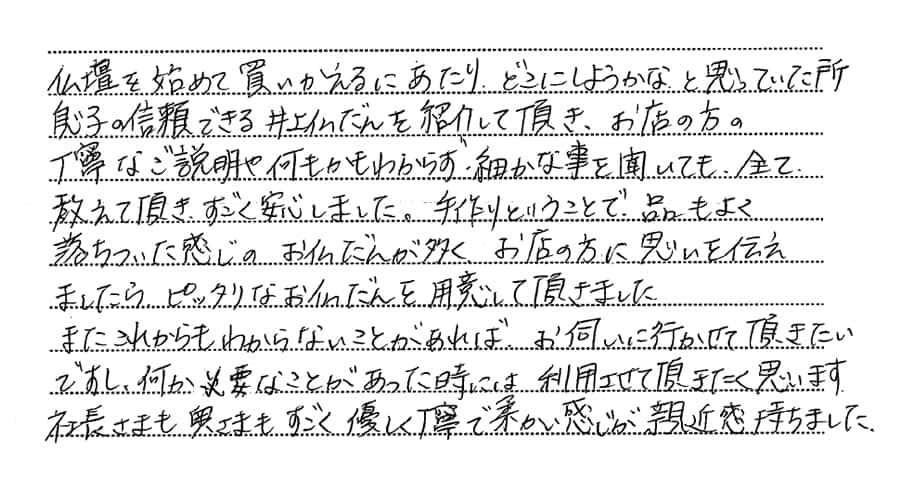 仏壇を始めて買いかえるにあたり、どこにしようかな と思っていた所
息子の信頼できる 井上仏だんを紹介して頂き、お店の方の
丁寧なご説明や何もかもわからず、細かな事を聞いても、全て、
教えて頂き、すごく安心しました。手作りということで、品もよく
落ちついた感じの お仏だんが多く、お店の方に思いを伝え
ましたら、ピッタリなお仏だんを用意して頂きました
またこれからもわからないことがあれば、お伺いに行かせて頂きたい
ですし、何か必要なことがあった時には 利用させて頂きたく思います
社長さまも奥さまもすごく優しく丁寧で柔かい感じが、親近感持ちました。